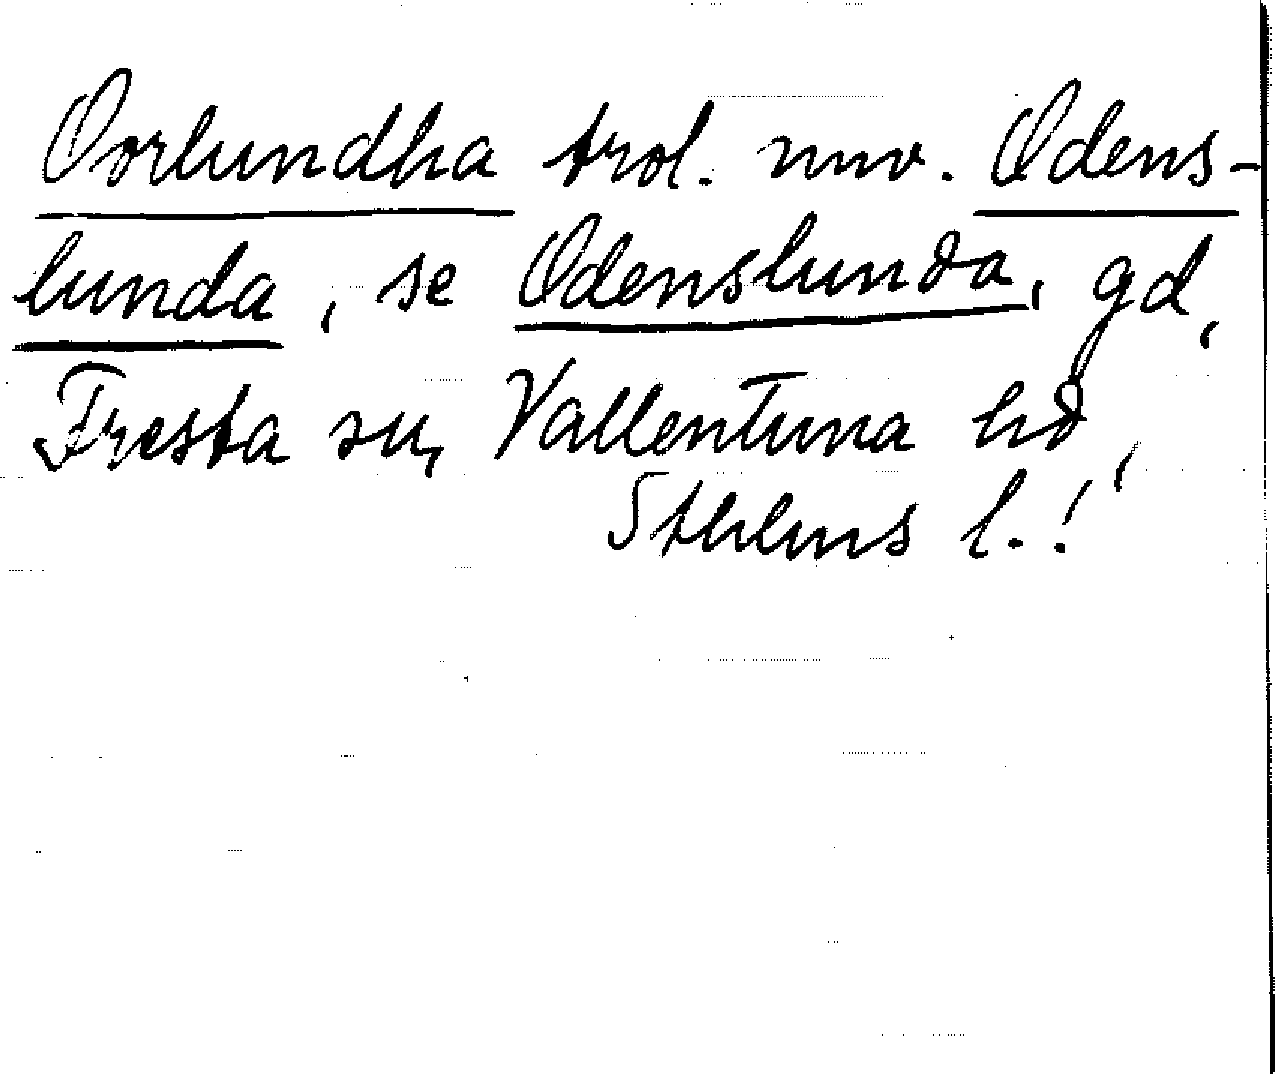 Oorlundha trol. nuv. Odens-
lunda, se Odenslunda, gd,
Fresta sn, Vallentuna hd,
Sthlms l.!